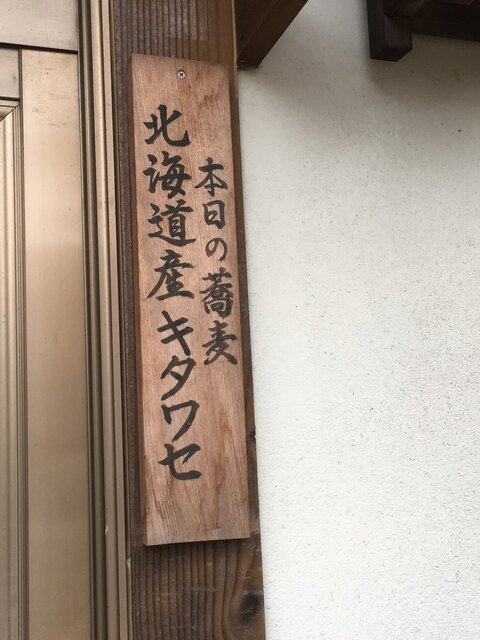 本日の蕎麦
北海道産キタワセ